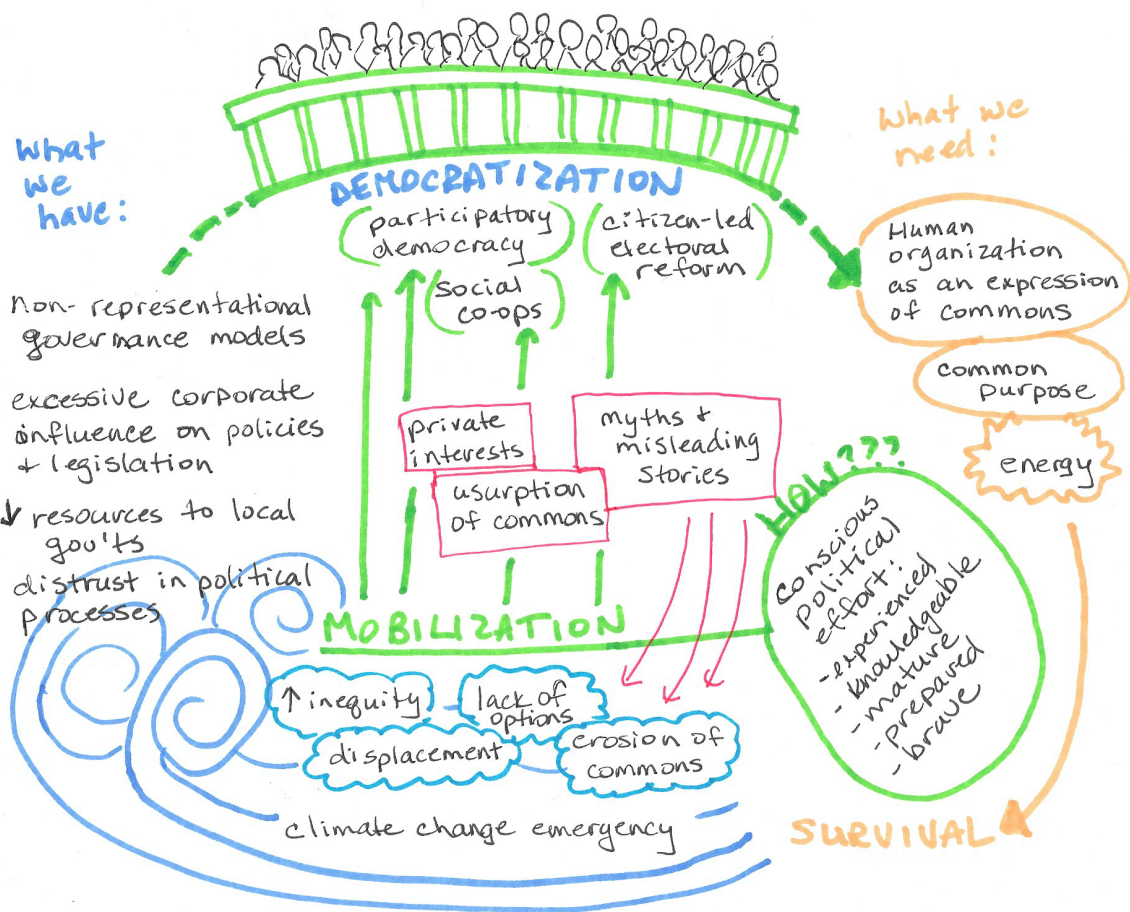 what
we
have:
non-representational
governance models
excessive corporate
influence on policies
+ legislation
↓ resources to local
gov'ts
distrust in political
processes
DEMOCRATIZATION
participatory
democracy
citizen-led
electoral
reform
social
co-ops
private
interests
usurption
of commons
myths +
misleading
stories
MOBILIZATION
↑ inequity
lack of
options
displacement
erosion of
commons
climate change emergency
what we
need:
Human
organization
as an expression
of commons
common
purpose
energy
HOW???
conscious
political
effort:
- experienced
- knowledgeable
- mature
- prepared
- brave
SURVIVAL